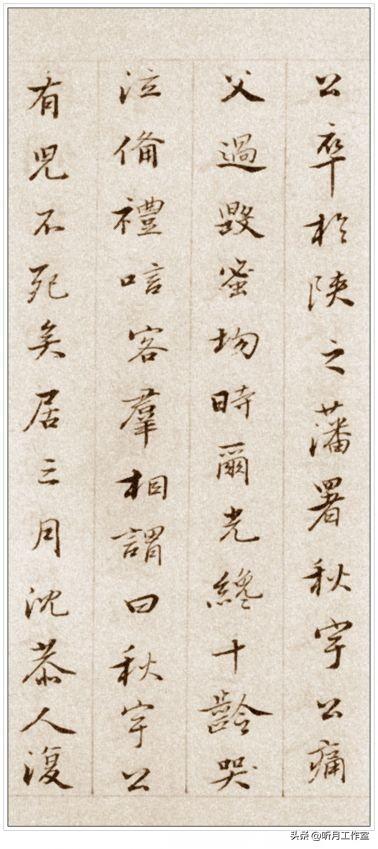 公卒於陝之藩署秋宇公痛
父過毀蜜均時爾光纔十齡哭
泣備禮唁客羣相謂曰秋宇公
有兒不死矣居三月沈恭人復
头条@听月工作室